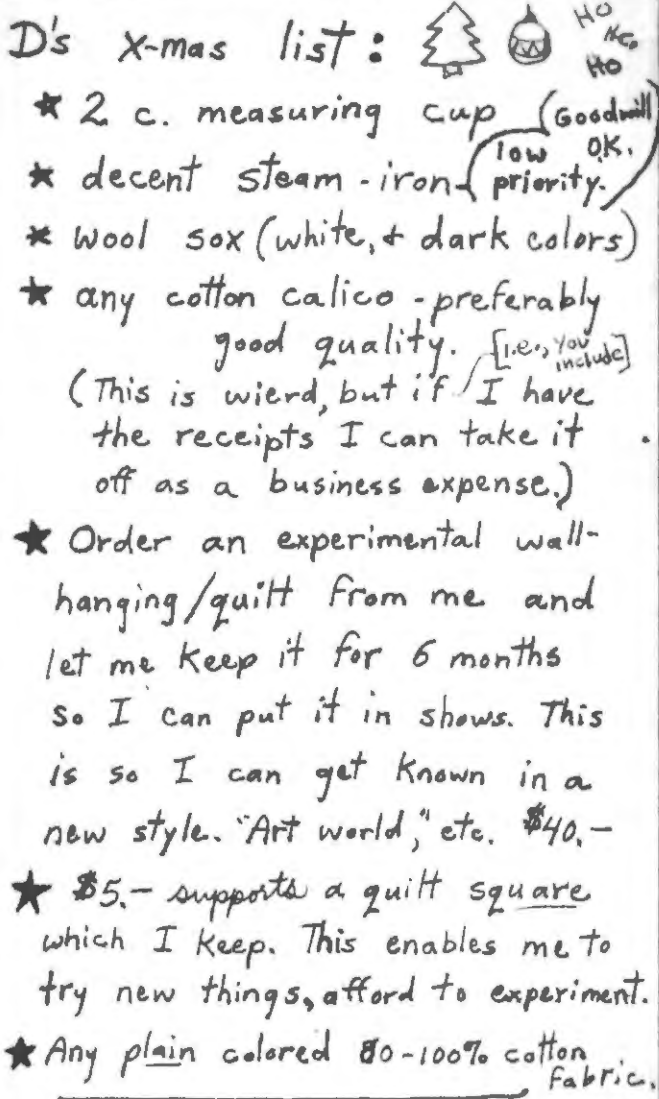 D's X-mas list:
Ho
Ho
Ho
* 2 c. measuring cup (Goodwill
OK.
* decent steam-iron-(low
priority.)
* wool sox (white, + dark colors)
* any cotton calico - preferably
good quality.
[i.e., you
include]
(This is wierd, but if I have
the receipts I can take it
off as a business expense.)
★ Order an experimental wall-
hanging/quilt from me and
let me keep it for 6 months
so I can put it in shows. This
is so I can get known in a
new style. "Art world," etc. $40.-
★ $5.- supports a quilt square
which I keep. This enables me to
try new things, afford to experiment.
★ Any plain colored 80-100% cotton
fabric.